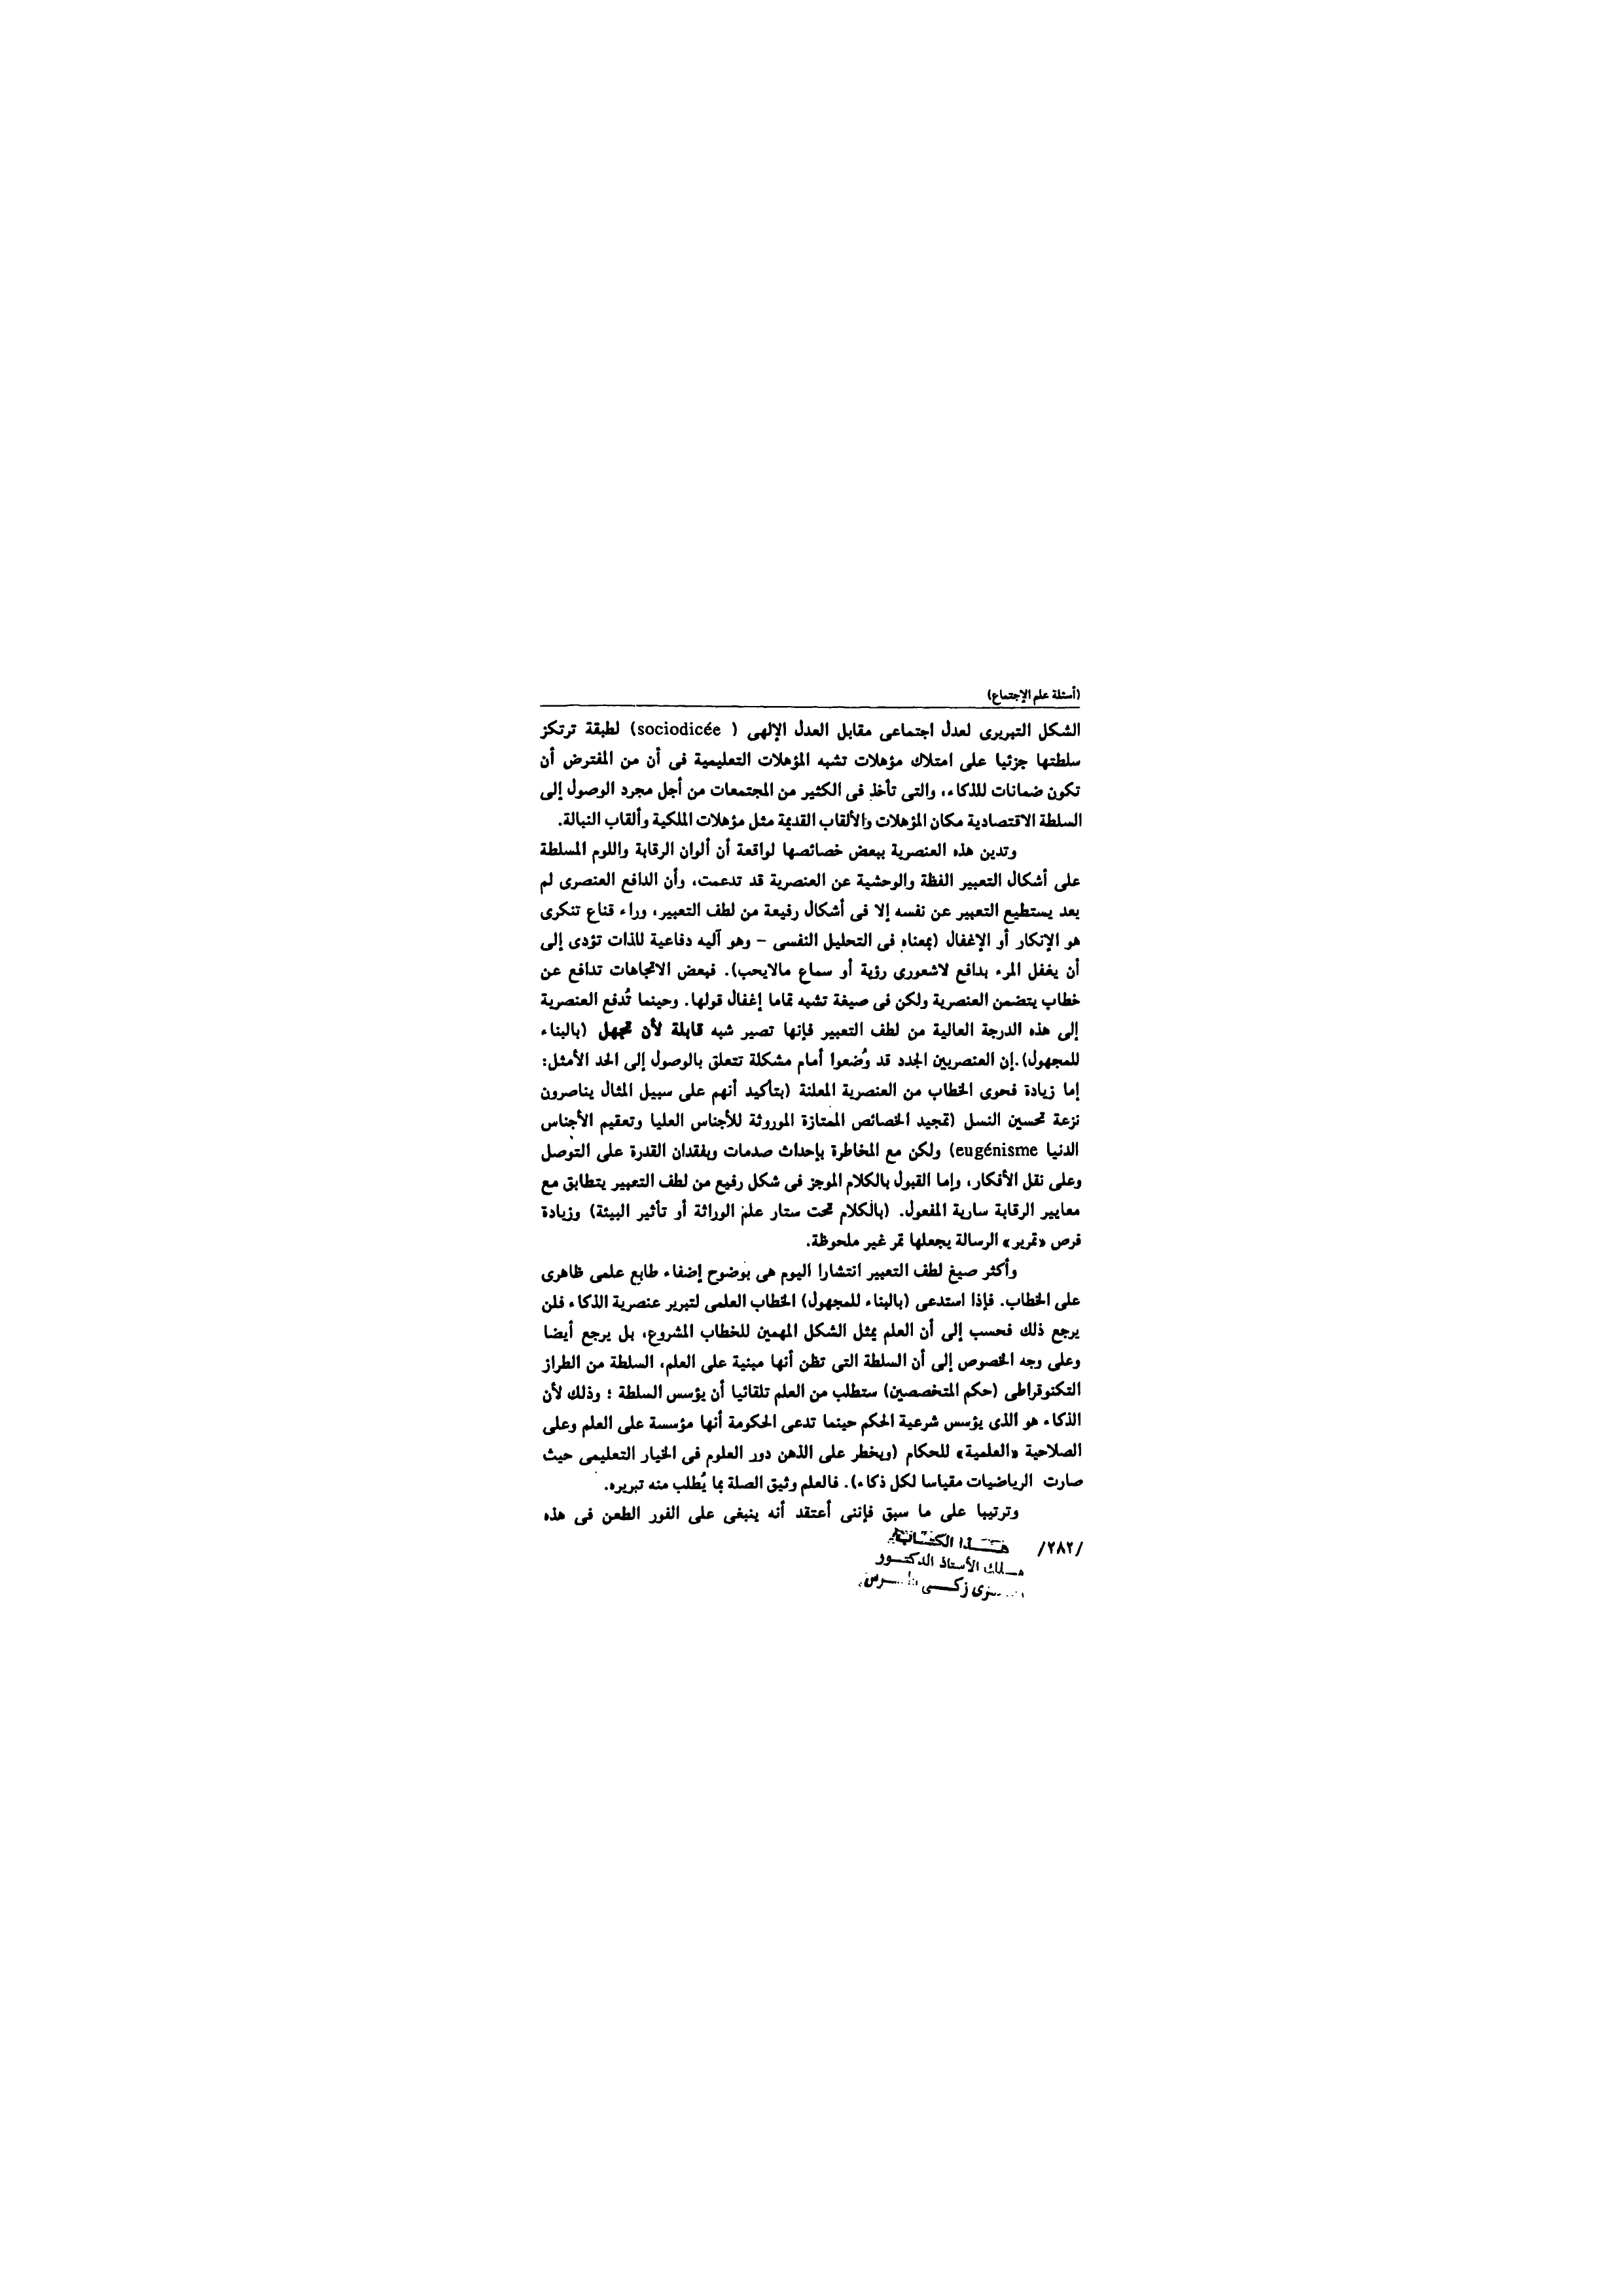 (أسئلة علم الإجتماع)
الشكل التبريرى لعدل اجتماعى مقابل العدل الإلهى ( sociodicée) لطبقة ترتكز
سلطتها جزئيا على امتلاك مؤهلات تشبه المؤهلات التعليمية فى أن من المفترض أن
تكون ضمانات للذكاء، والتى تأخذ فى الكثير من المجتمعات من أجل مجرد الوصول إلى
السلطة الاقتصادية مكان المؤهلات والألقاب القديمة مثل مؤهلات الملكية وألقاب النبالة.
وتدين هذه العنصرية ببعض خصائصها لواقعة أن ألوان الرقابة واللوم المسلطة
على أشكال التعبير الفظة والوحشية عن العنصرية قد تدعمت، وأن الدافع العنصرى لم
يعد يستطيع التعبير عن نفسه إلا فى أشكال رفيعة من لطف التعبير، وراء قناع تنكرى
هو الإنكار أو الإغفال (بمعناه فى التحليل النفسى – وهو آليه دفاعية للذات تؤدى إلى
أن يغفل المرء بدافع لاشعورى رؤية أو سماع مالايحب). فبعض الاتجاهات تدافع عن
خطاب يتضمن العنصرية ولكن فى صيغة تشبه تماما إغفال قولها. وحينما تُدفع العنصرية
إلى هذه الدرجة العالية من لطف التعبير فإنها تصير شبه قابلة لأن تجهل (بالبناء
للمجهول).إن العنصريين الجدد قد وُضعوا أمام مشكلة تتعلق بالوصول إلى الحد الأمثل:
إما زيادة فحوى الخطاب من العنصرية المعلنة (بتأكيد أنهم على سبيل المثال يناصرون
نزعة تحسين النسل (تمجيد الخصائص الممتازة الموروثة للأجناس العليا وتعقيم الأجناس
الدنيا eugénisme) ولكن مع المخاطرة بإحداث صدمات وبفقدان القدرة على التوصل
وعلى نقل الأفكار، وإما القبول بالكلام الموجز فى شكل رفيع من لطف التعبير يتطابق مع
معايير الرقابة سارية المفعول. (بالكلام تحت ستار علم الوراثة أو تأثير البيئة) وزيادة
فرص «تمرير» الرسالة يجعلها تمر غير ملحوظة.
وأكثر صيغ لطف التعبير انتشارا اليوم هى بوضوح إضفاء طابع علمى ظاهرى
على الخطاب. فإذا استدعى (بالبناء للمجهول) الخطاب العلمى لتبرير عنصرية الذكاء فلن
يرجع ذلك فحسب إلى أن العلم يمثل الشكل المهمين للخطاب المشروع، بل يرجع أيضا
وعلى وجه الخصوص إلى أن السلطة التى تظن أنها مبنية على العلم، السلطة من الطراز
التكنوقراطى (حكم المتخصصين) ستطلب من العلم تلقائيا أن يؤسس السلطة ؛ وذلك لأن
الذكاء هو الذى يؤسس شرعية الحكم حينما تدعى الحكومة أنها مؤسسة على العلم وعلى
الصلاحية «العلمية» للحكام (ويخطر على الذهن دور العلوم فى الخيار التعليمى حيث
صارت الرياضيات مقياسا لكل ذكاء). فالعلم وثيق الصلة بما يُطلب منه تبريره.
وترتيبا على ما سبق فإننى أعتقد أنه ينبغى على الفور الطعن فى هذه
/٢٨٢/
هـــذا الكتــاب
ملك الأستاذ الدكتــور
زكـــى